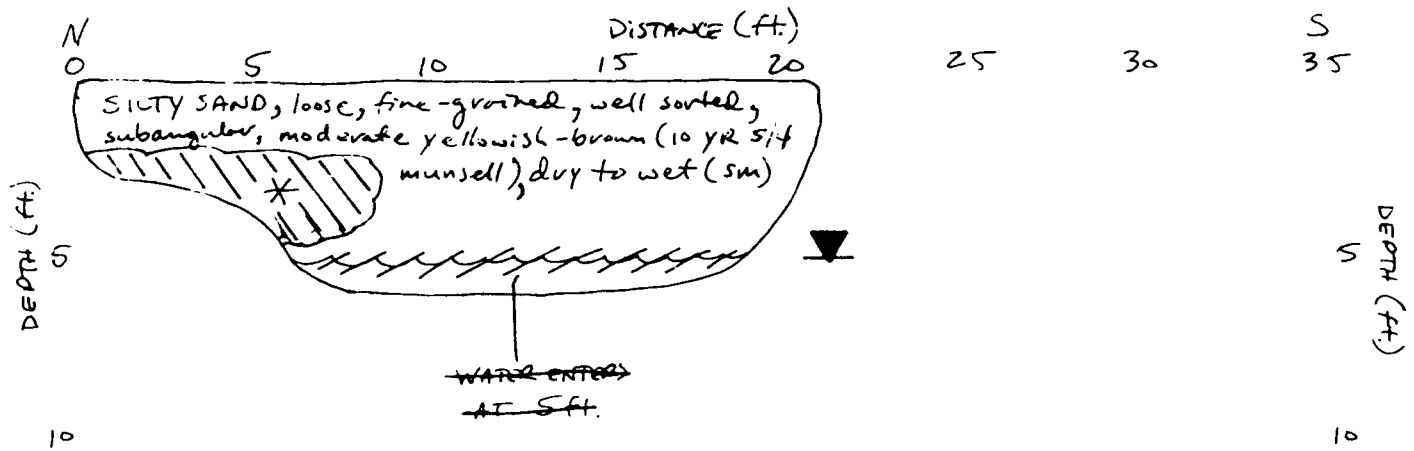 N DISTANCE (ft.) S
0 5 10 15 20 25 30 35
SILTY SAND, loose, fine-grained, well sorted,
subangular, moderate yellowish-brown (10 YR 5/4
munsell), dry to wet (sm)
*
DEPTH (ft.)
5
5
DEPTH (ft.)
WATER ENTERS
AT 5 ft.
10
10